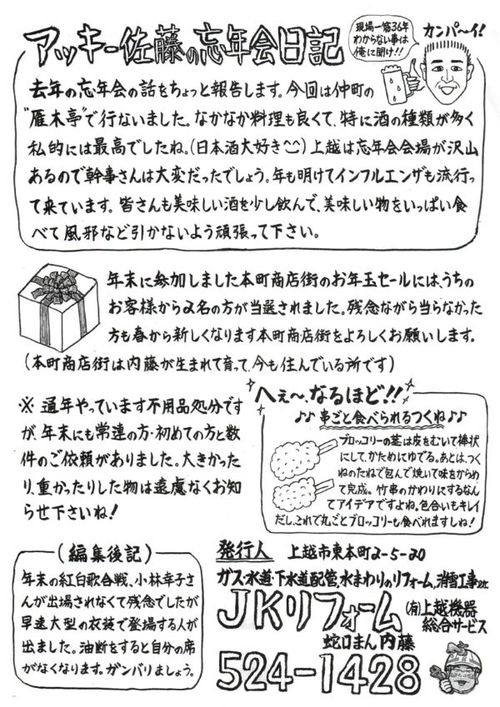 アッキー佐藤の忘年会日記
現場一筋36年
わからない事は
俺に聞け!!
カンパ〜イ!
去年の忘年会の話をちょっと報告します。今回は仲町の
"雁木亭"で行ないました。なかなか料理も良くて、特に酒の種類が多く
私的には最高でしたね。(日本酒大好き) 上越は忘年会会場が沢山
あるので幹事さんは大変だったでしょう。年も明けてインフルエンザも流行っ
て来ています。皆さんも美味しい酒を少し飲んで、美味しい物をいっぱい食
べて風邪など引かないよう頑張って下さい。
年末に参加しました本町商店街のお年玉セールには、うちの
お客様から2名の方が当選されました。残念ながら当らなかった
方も春から新しくなります本町商店街をよろしくお願いします。
(本町商店街は内藤が生まれて育って、今も住んでいる所です)
※ 通年やっています不用品処分です
が、年末にも常連の方・初めての方と数
件のご依頼がありました。大きかった
り、重かったりした物は遠慮なくお知
らせ下さいね!
へぇ〜、なるほど!!
♪♪ 串ごと食べられるつくね ♪♪
ブロッコリーの茎は皮をむいて棒状
にして、かためにゆでる。あとは、つく
ねのたねで包んで焼いて味をからめ
て完成。竹串のかわりにするなん
てアイデアですよね。色合いもキレイ
だし、これで丸ごとブロッコリーも食べれますしね!
(編集後記)
年末の紅白歌合戦、小林幸子さ
んが出場されなくて残念でしたが
早速大型の衣装で登場する人が
出ました。油断をすると自分の席
がなくなります。ガンバりましょう。
発行人 上越市東本町2-5-20
ガス・水道・下水道配管、水まわりのリフォーム、消雪工事etc
JKリフォーム
(有)上越機器
総合サービス
蛇口まん内藤
524-1428